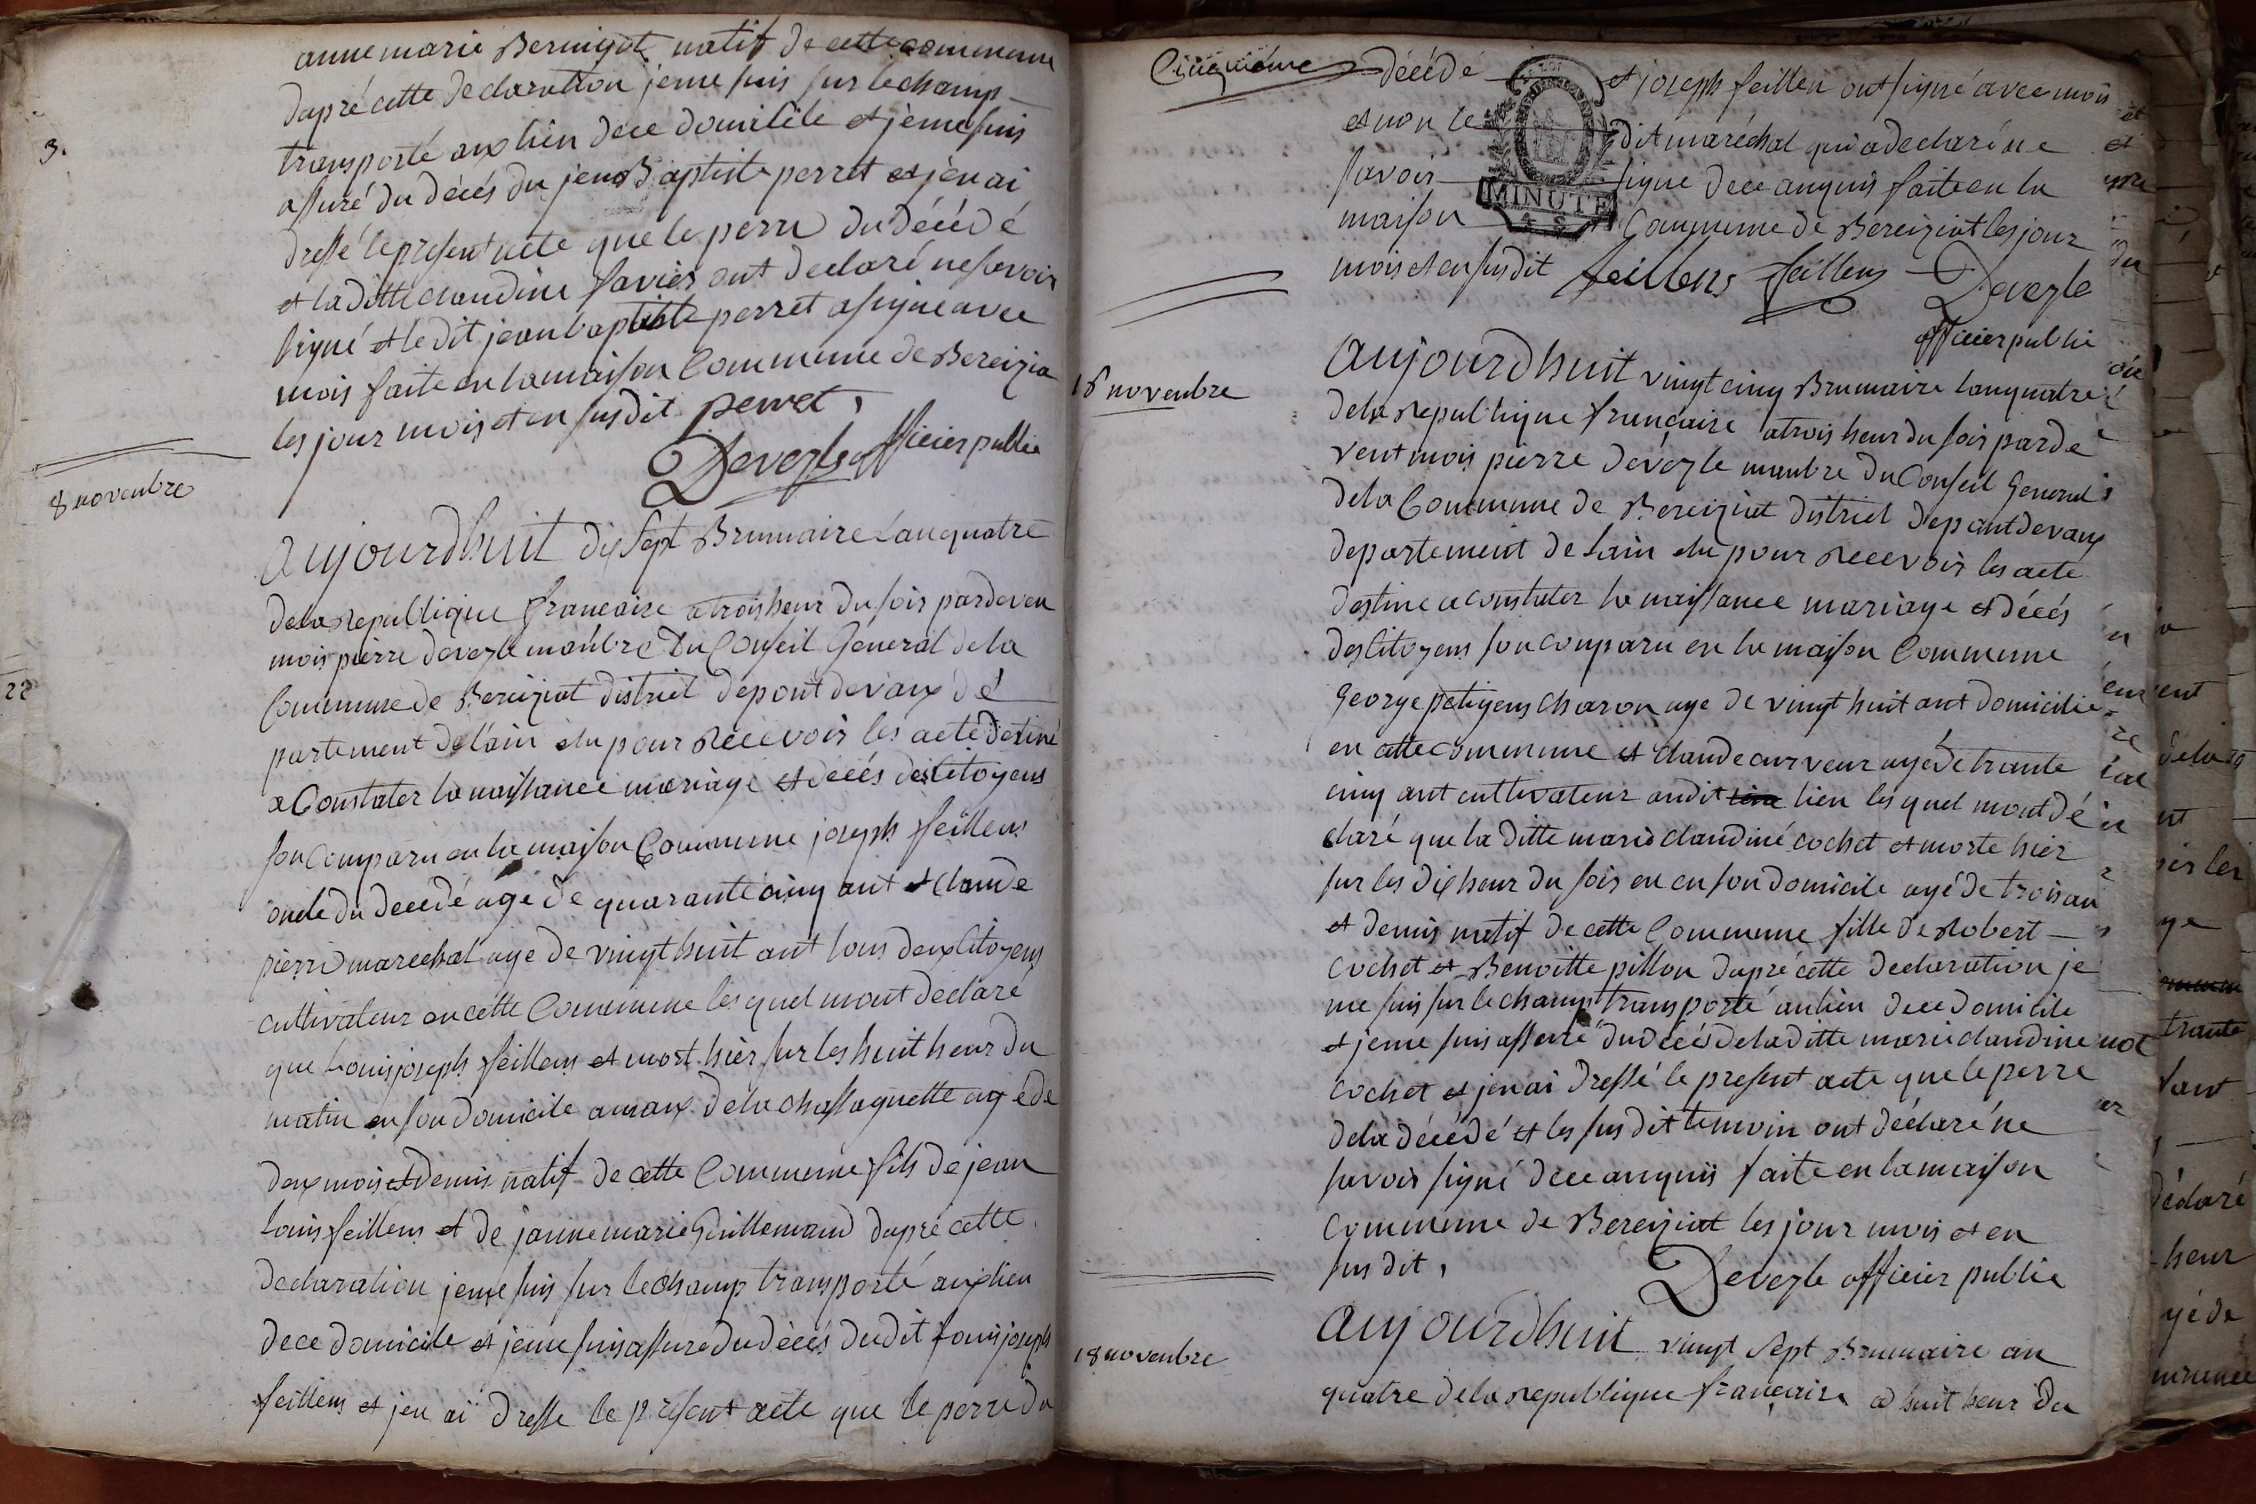 anne marie Bernigot natif de cette commune
dapré cette declaration jeme suis sur lechamp
3.
transporté aux lieu dece domicile et jeme suis
assuré du décés du jean Baptiste perret et jen ai
dressé lepresent acte que le perre du décédé
et la ditte claudine favier ont declaré nesavoir
signé et ledit jean baptiste perret a signe avec
mois faite en lamaison Commune de Bereizia
les jour mois et en susdit perret
Devezle officier public
8 novembre
aujourdhuit dix sept Brumaire Lanquatre
dela republique francaise atrois heur du soir pardeven
mois pierre devezle manbre du Conseil General dela
22
Commune de Bereiziat district depont devaux dé
partement delain elu pour recevoir les acte destiné
a Constater la naissance mariage et décés des Citoyens
son comparu en la maison Commune joseph feillens
oncle du decedé agé de quarante cinq ant et claude
pierre marechal age de vingt huit ant tous deux Citoyens
cultivateur en cette Commune les quel mont declaré
que Louis joseph feillens et mort hièr sur les huit heur du
matin en son domicile amaux dela chassagnette agé de
deux mois et demis natif de cette Commune fils de jean
louis feillens et de janne marie Guillemaud dapré cette
declaration jeme suis sur lechamp transporté aux lieu
dece domicile et jeme suis assuré du décés dudit Louis joseph
feillens et jen ai dresse le present acte que le perre du
Cinquième
décédé et joseph feillen ont signé avec mois
et non le dit maréchal qui a declaré ne
savoir signe dece anquis faite en la
MINUTE
maison Commune de Bereiziat les jour
mois et en susdit feillens feillens Devezle
officier public
16 novembre
aujourdhuit vingt cinq Brumaire lanquatre
dela republique française atrois heur du soir pardé
vent mois pierre devezle manbre du Conseil General
dela Commune de Bereiziat district depont devaux
departement de lain elu pour recevoir les acte
destine a constater la naissance mariage et décés
des Citoyens son comparu en la maison Commune
George petigens charon age de vingt huit ant domicilie
en cette commune et claude curveur agé de trante
cinq ant cultivateur audit lieu les quel mont dé
claré que la ditte marie claudine cochet et morte hièr
sur les dix heur du soir en en son domicile agé de trois an
et demis natif de cette Commune fille de Robert
Cochet et Benoitte pillon dapré cette declaration je
me suis sur le champ transporté au lieu dece domicile
et jeme suis assuré du décés dela ditte marie claudine
cochet et jenai dressé le present acte que le perre
dela décédé et les susdit temoin ont déclaré ne
savoir signé dece anquis faite en la maison
commune de Bereiziat les jour mois et en
susdit,
Devezle officier public
18 novembre
aujourdhuit vingt sept Brumaire an
quatre dela republique française a huit heur du